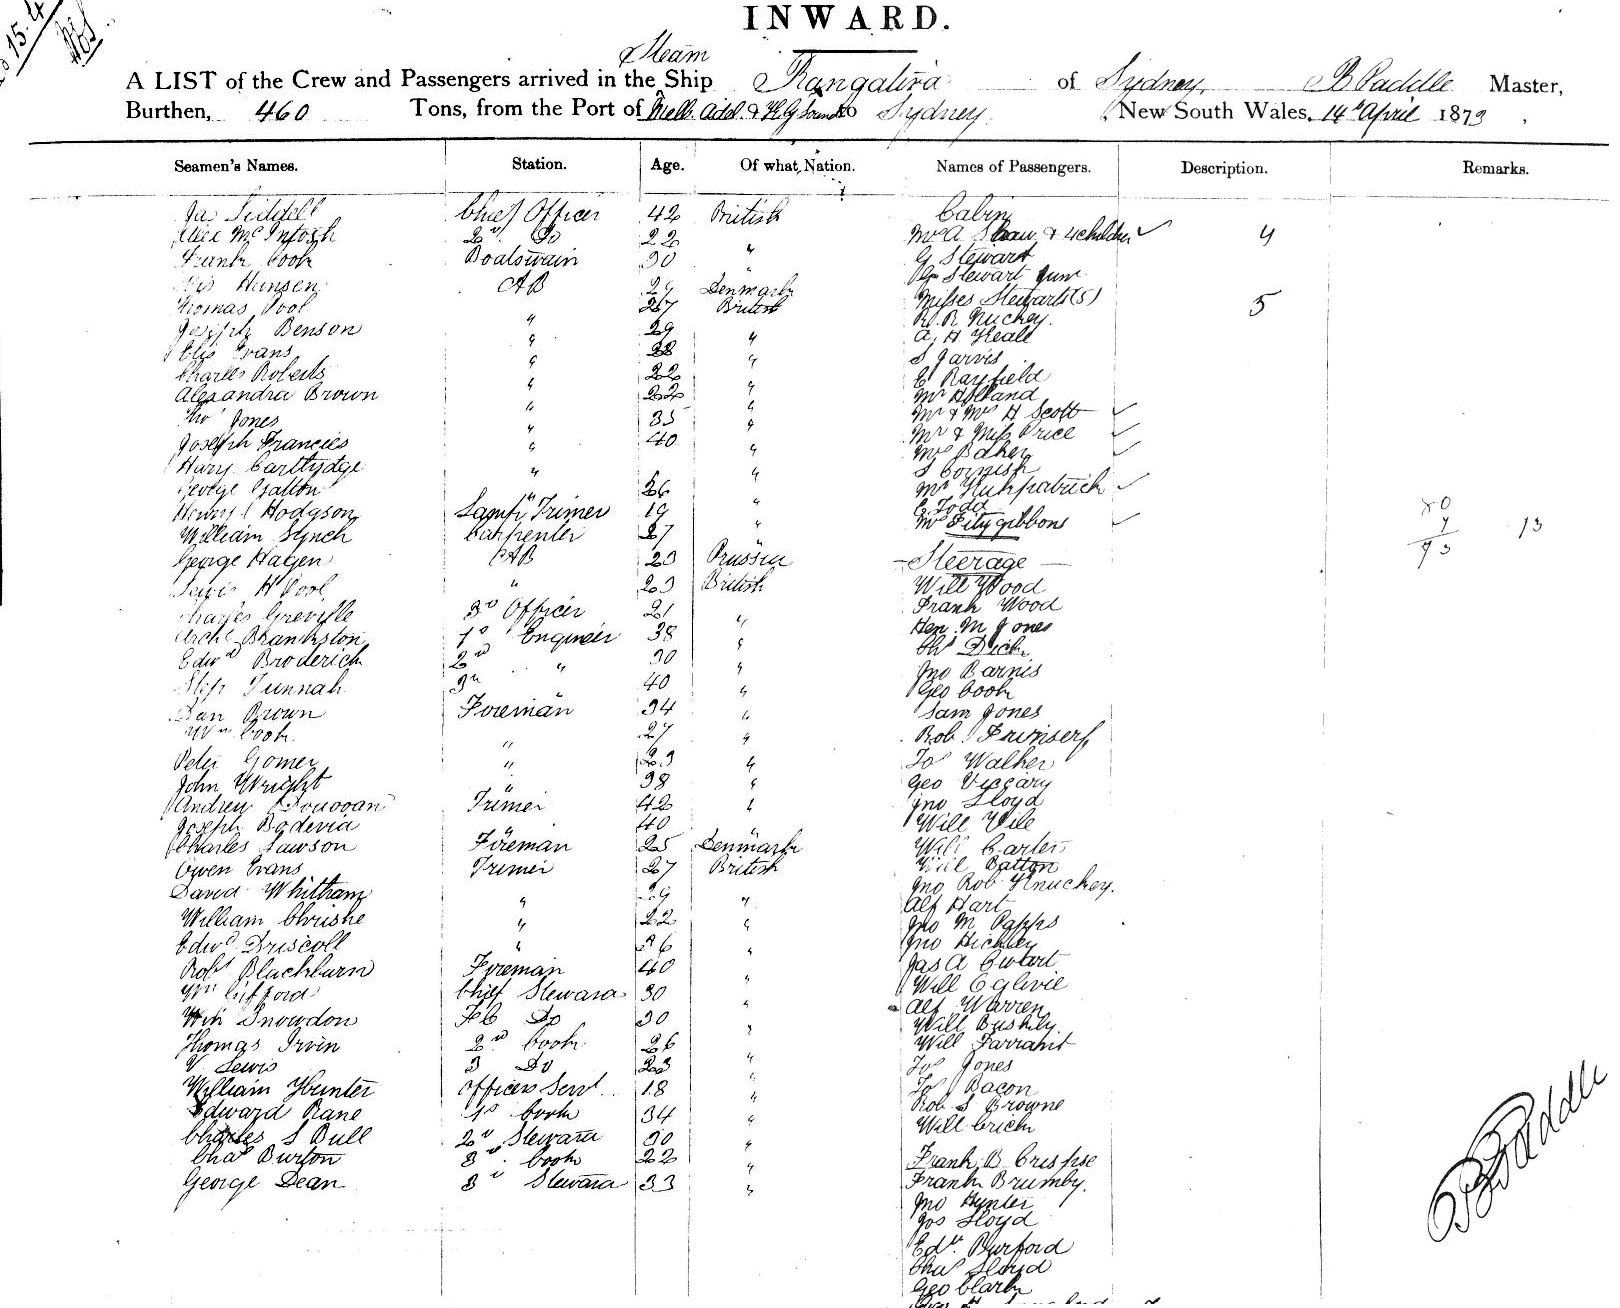 INWARD.
Steam
A LIST of the Crew and Passengers arrived in the Ship Rangatira of Sydney, B Paddle Master,
Burthen, 460 Tons, from the Port of Melb. Add. & K.G Sound to Sydney New South Wales, 14th April 1873
Seamen's Names. Station. Age. Of what Nation. Names of Passengers. Description. Remarks.
Jas Liddell Chief Officer 42 British Cabin
Alex McIntosh 2nd Do 22 " Mrs A Shaw & 4 children 4
Frank Cook Boatswain 30 " G Stewart
Hansen AB 29 Denmark G Stewart Junr
Thomas Pool 27 British Misses Stewarts (5) 5
Joseph Benson " 29 " R. R Nuckey
Evans " 28 " A. H Heall
Charles Roberts " 22 " S Jarvis
Alexandra Brown " 22 " E Rayfield
Thos Jones " 35 " Mr Holland
Joseph Francies " 40 " Mr & Mrs H Scott
Hary Cartlydge " " Mr & Miss Price
George Galton " 26 " Mrs Baker
Henry Hodgson Lamp Trimer 19 " S Cornish
William Lynch Carpenter 27 " Mrs Kirkpatrick
George Hagen AB 23 Prussia E Todd
Lewis H Pool " 23 British Mrs Fitzgibbons
80
13
93
Charles Greville 3rd Officer 21 " Steerage
Archd Brankston 1st Engineer 38 " Will Wood
Edwd Broderick 2nd " 30 " Frank Wood
Tunnah 3rd " 40 " Hen. M Jones
Dan Brown Foreman 34 " Dick
Wm Cook " 27 " Jno Barnis
Peter Gomer " 23 " Geo Cook
John Wright " 38 " Sam Jones
Andrew Donovan Trimer 42 " Rob.
Joseph Bodevia " 40 " Jos Walker
Charles Lawson Fireman 25 Denmark Geo Viccary
Owen Evans Trimer 27 British Jno Lloyd
David Whitham " 29 " Will Vile
William Christie " 22 " Will Carter
Edwd Driscoll " 26 " Will Batton
Robt Blackburn Foreman 40 " Jno Rob Knuckey.
Wm Gifford Chief Steward 30 " Alf Hart
Wm Snowdon FC Do 30 " Jno M Papps
Thomas Irvin 2nd Cook 26 " Jno Hickley
V Lewis 3 Do 23 " Jas A
William Hunter Officers Servt 18 " Will Oglivie
Edward Rane 1st Cook 34 " Alf Warren
Charles S Bull 2nd Steward 30 " Will Bushby
Chas Burton 3rd Cook 22 " Will Farrant
George Dean 3rd Steward 33 " Jos Jones
Jos Bacon
Rob S Browne
Will Crick
Frank B Crispe
Frank Brumby.
Jno Hunter
Jos Lloyd
Edw. Burford
Chas Lloyd
Geo Clark
B Paddle